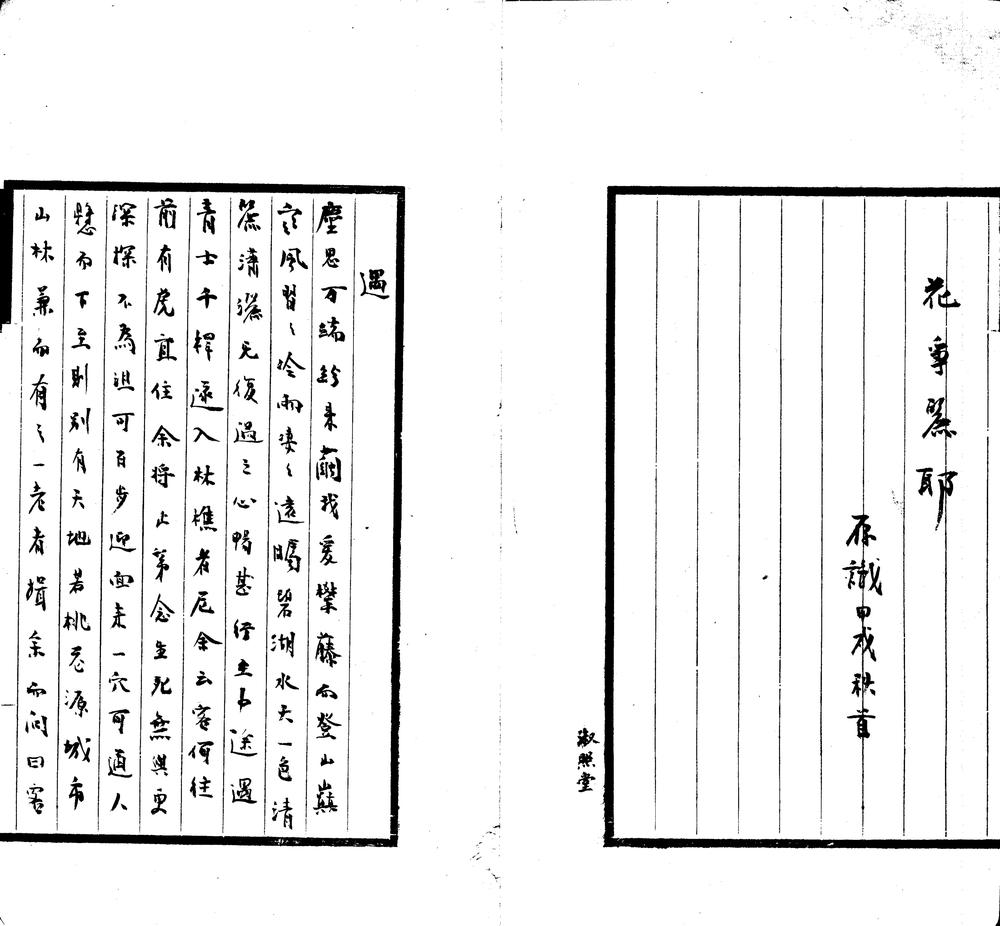 花爭麗耶
原識甲戌秋首
淑照堂
遇
塵思百端紛來繭我爰攀藤而登山巔
風習習冷雨淒淒遠矚碧湖水天一色清
麗瀟灑無復過之心暢甚徑至中途遇
青士千桿遂入林樵者尼余云客何往
前有虎宜住余將止第念生死無與更
深探不為沮可百步迎面來一穴可通人
懸而下至則別有天地若桃花源城市
山林兼而有之一老者揖余而問曰客